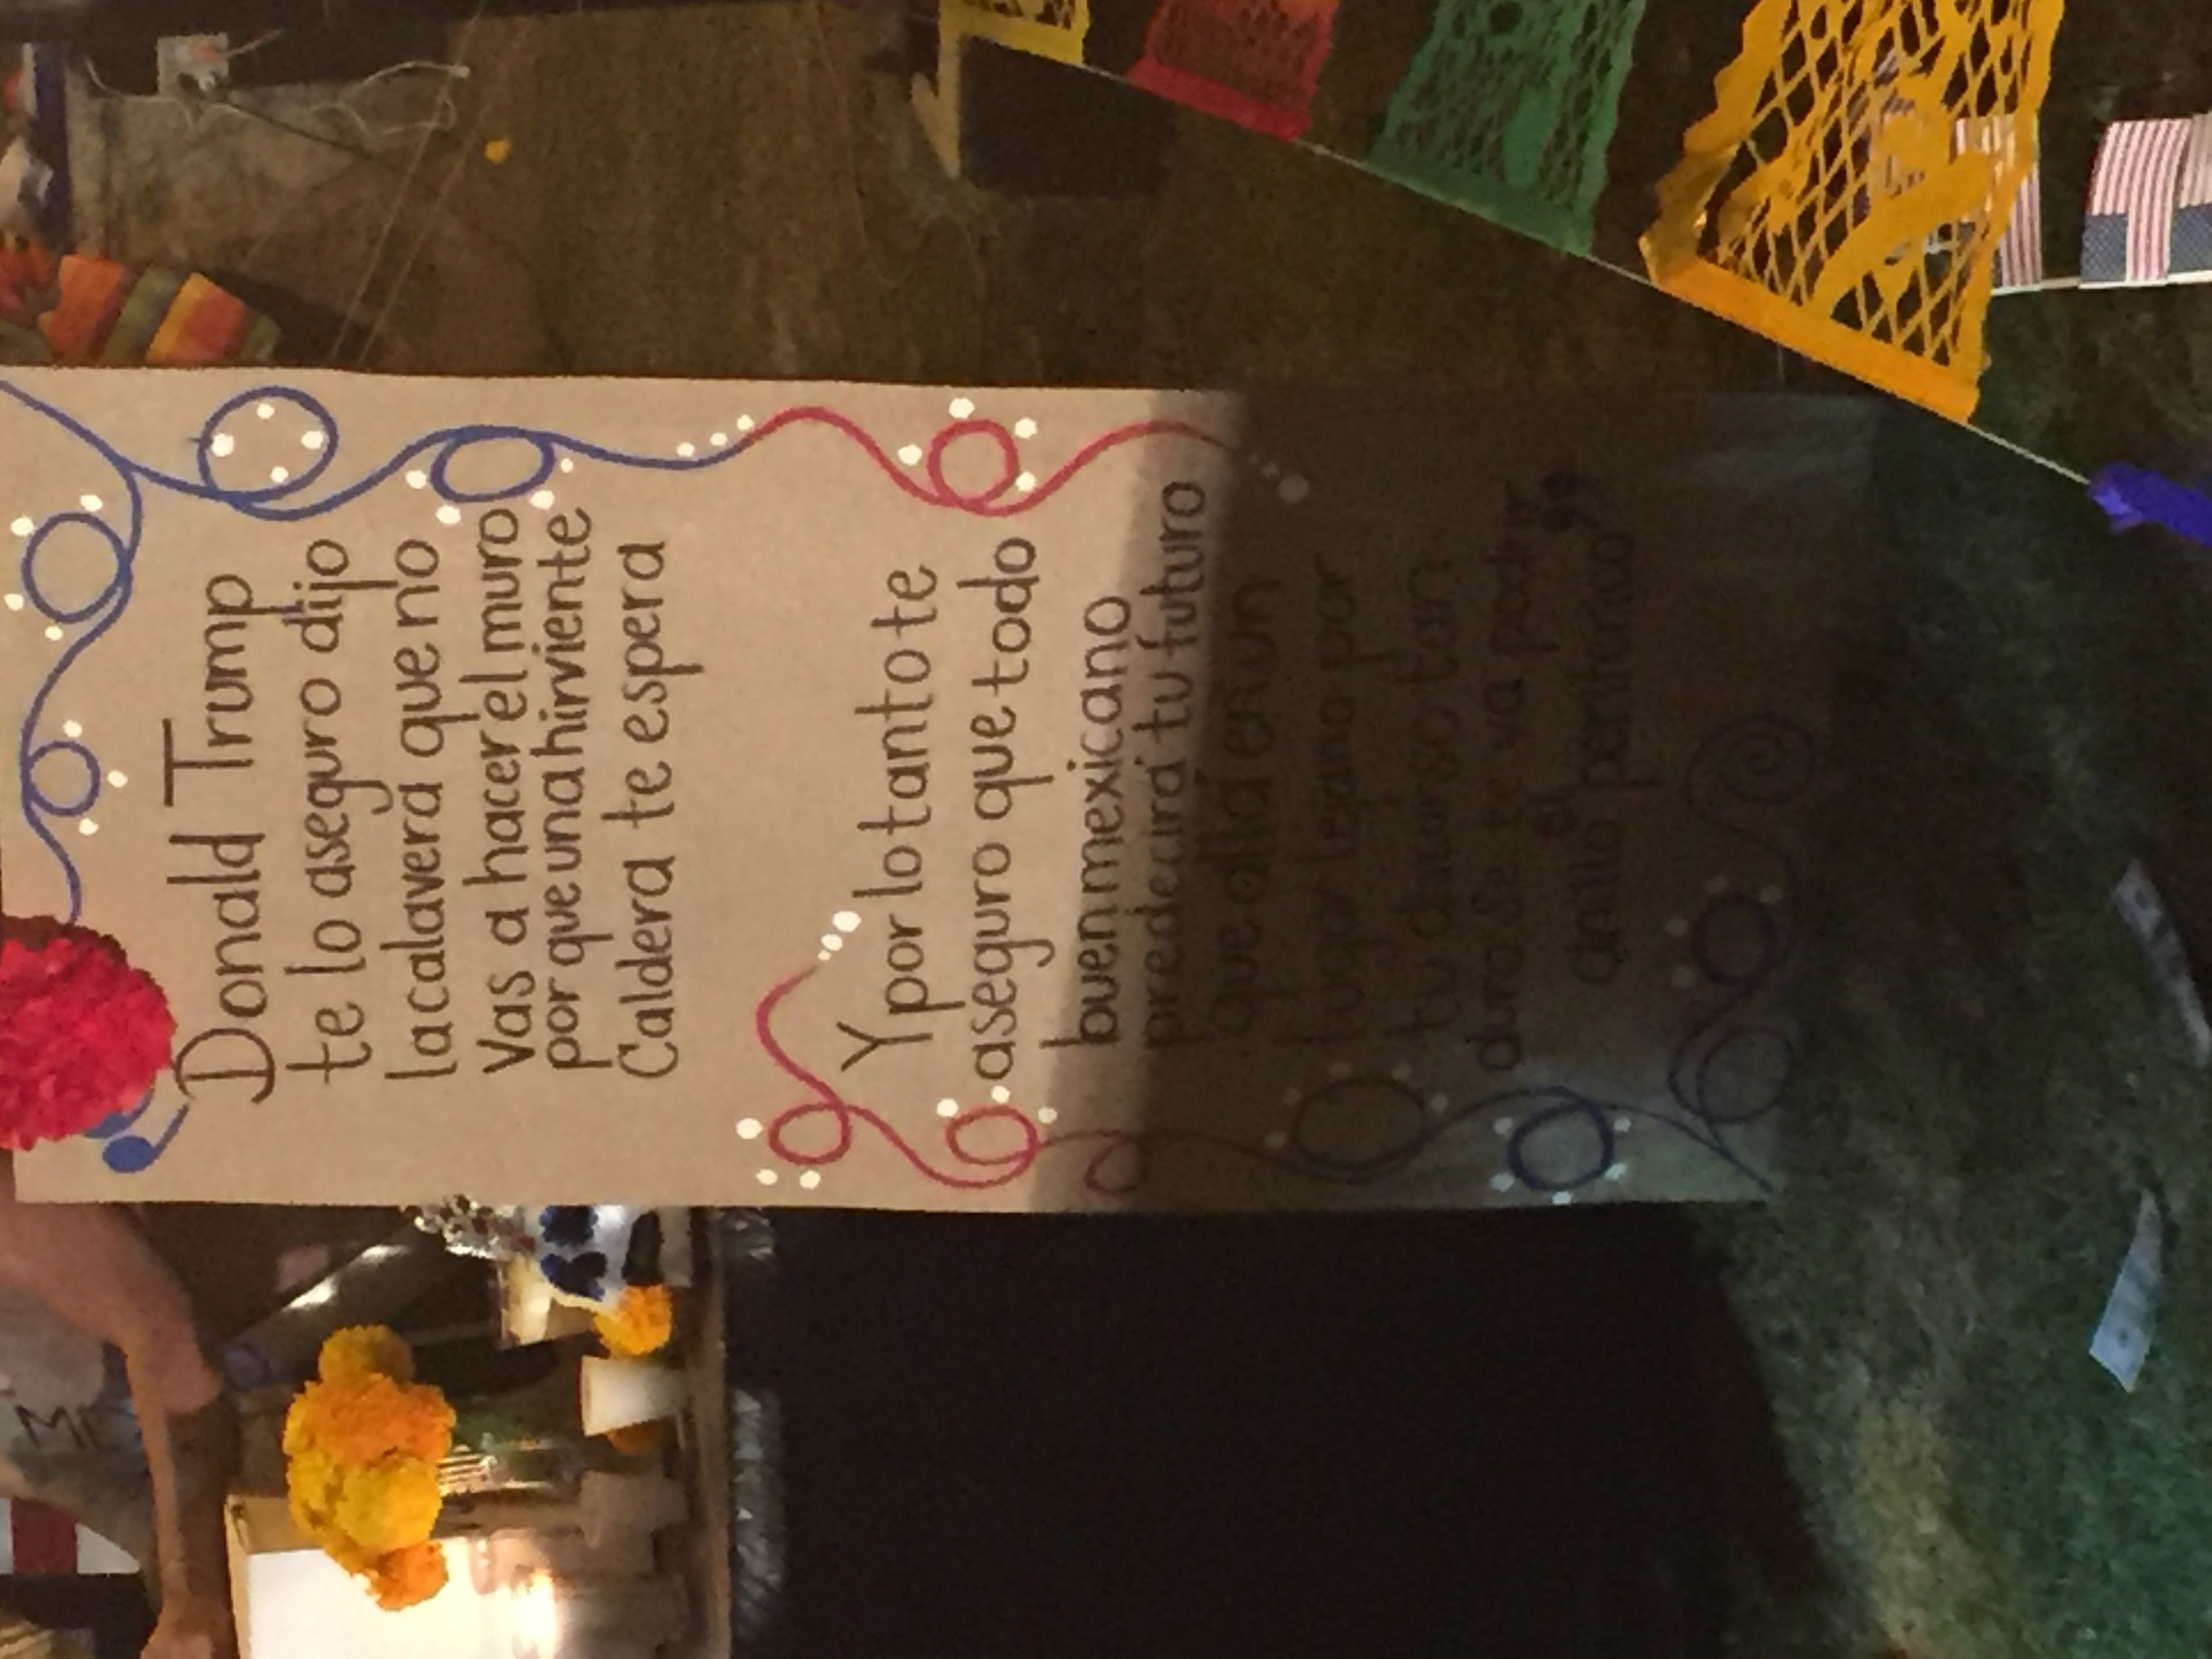 Donald Trump
te lo aseguro dijo
la calavera que no
vas a hacer el muro
por que una hirviente
Caldera te espera
Y por lo tanto te
aseguro que todo
buen mexicano
predecirá tu futuro
que allá en un
lugar lejano por
tu discurso tan
duro se te va podrir
el
anillo periferico”